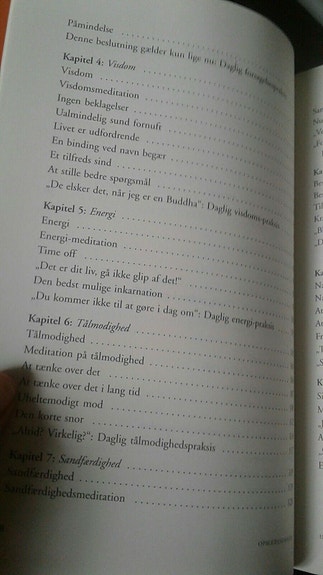 Påmindelse
Denne beslutning gælder kun lige nu: Daglig forsagelsespraksis
Kapitel 4: Visdom
Visdom
Visdomsmeditation
Ingen beklagelser
Ualmindelig sund fornuft
Livet er udfordrende
En binding ved navn begær
Et tilfreds sind
At stille bedre spørgsmål
„De elsker det, når jeg er en Buddha“: Daglig visdoms-praksis
Kapitel 5: Energi
Energi
Energi-meditation
Time off
„Det er dit liv, gå ikke glip af det!“
Den bedst mulige inkarnation
„Du kommer ikke til at gøre i dag om“: Daglig energi-praksis
Kapitel 6: Tålmodighed
Tålmodighed
Meditation på tålmodighed
At tænke over det
At tænke over det i lang tid
Uheltemodigt mod
Den korte snor
„Altid? Virkelig?“: Daglig tålmodighedspraksis
Kapitel 7: Sandfærdighed
Sandfærdighed
Sandfærdighedsmeditation